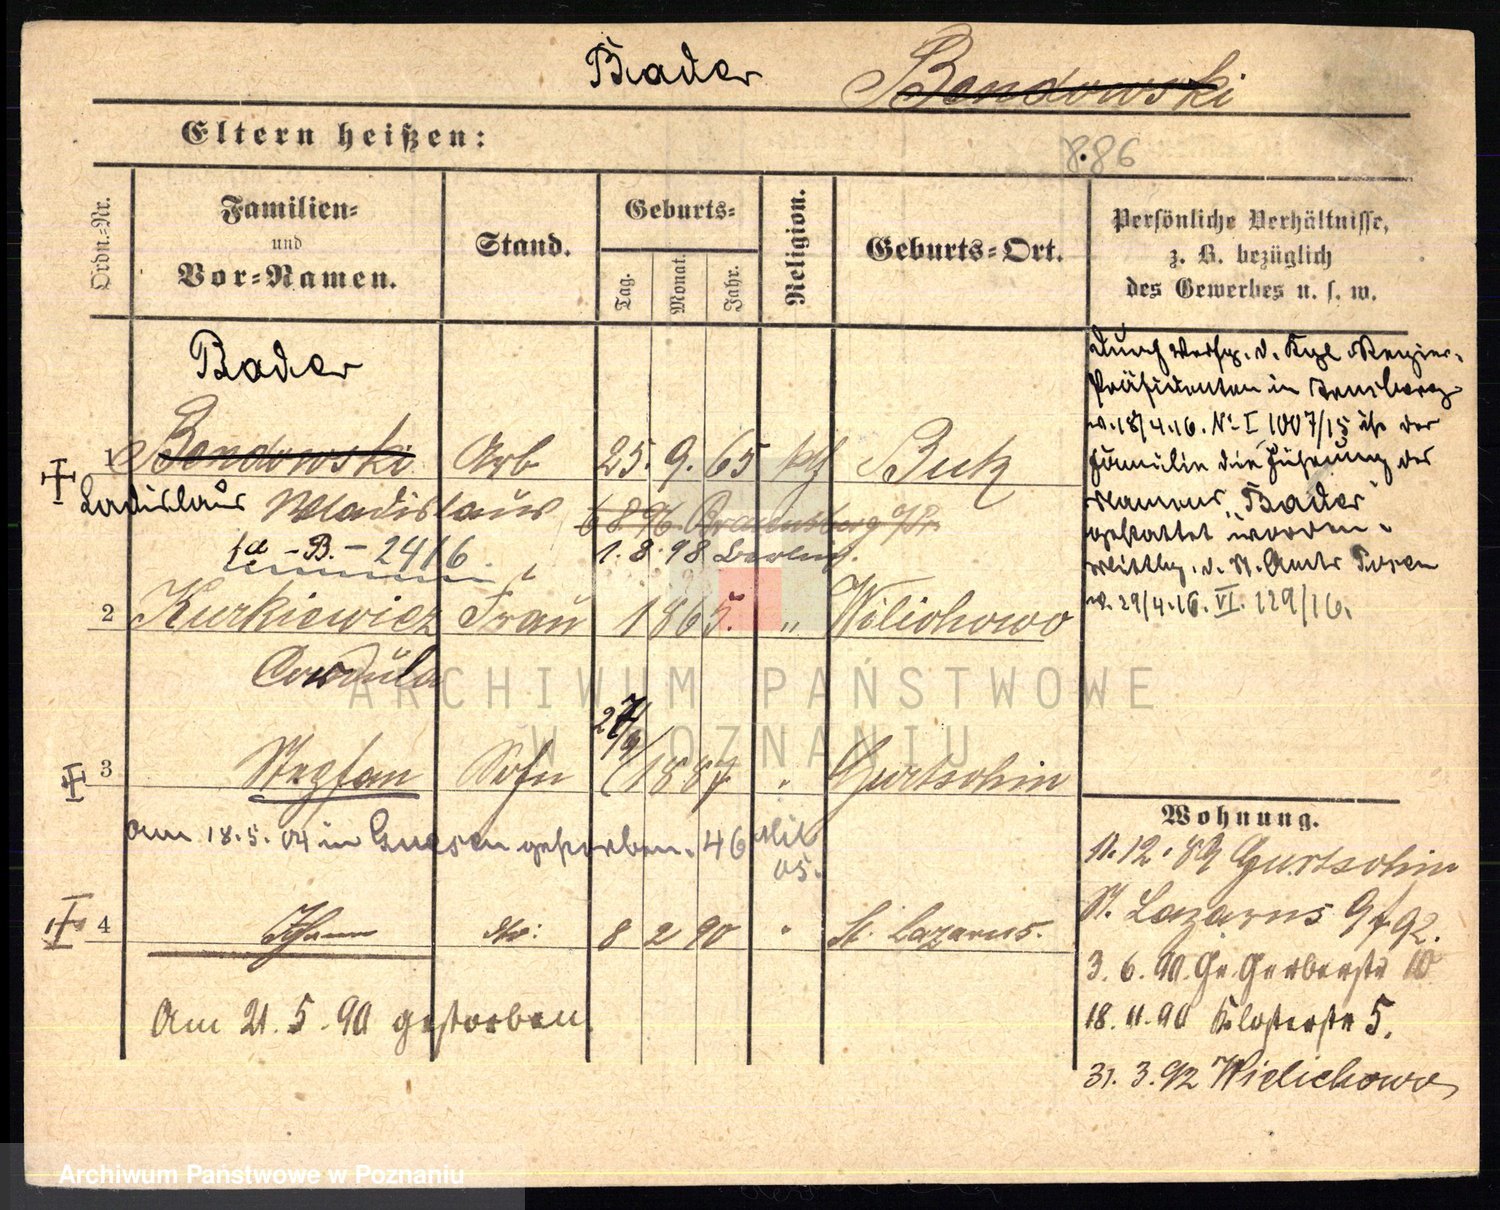 Bader Bendowski
Eltern heißen:
886
Ordn.-Nr.
Familien-
und
Vor-Namen.
Stand.
Geburts-
Tag.
Monat.
Jahr.
Religion.
Geburts-Ort.
Persönliche Verhältnisse,
z. B. bezüglich
des Gewerbes u. s. w.
Bader
1 Bendowski Arb 25. 9. 65 kth Buk
Ladislaus Wladislaus
B. - 2416 1. 8. 98 Berlin
2 Kurkiewicz Frau 1865. " Wilichowo
Cordula
27/9
3 Stephan Sohn 1887 " Gurtschin
Am 18.5.04 in Gnesen gestorben. 46
05.
4 Johann 8 2 90 " St. Lazarus.
Am 21.5.90 gestorben.
Durch Verfg. d. Kgl. Regier-
Präsidenten in Arnsberg
v. 18/4.16. No I 1007/15 ist der
Familie die Führung des
Namens "Bader"
gestattet worden.
Mittlg. d. St. Amts Posen
v. 29/4.16. VI. 129/16.
Wohnung.
11.12.89 Gurtschin
St. Lazarus 9
3.6.90 Gr. Gerberstr 10
18.11.90 Klosterstr 5.
31.3.92 Wielichowo
ARCHIWUM PAŃSTWOWE
W POZNANIU
Archiwum Państwowe w Poznaniu